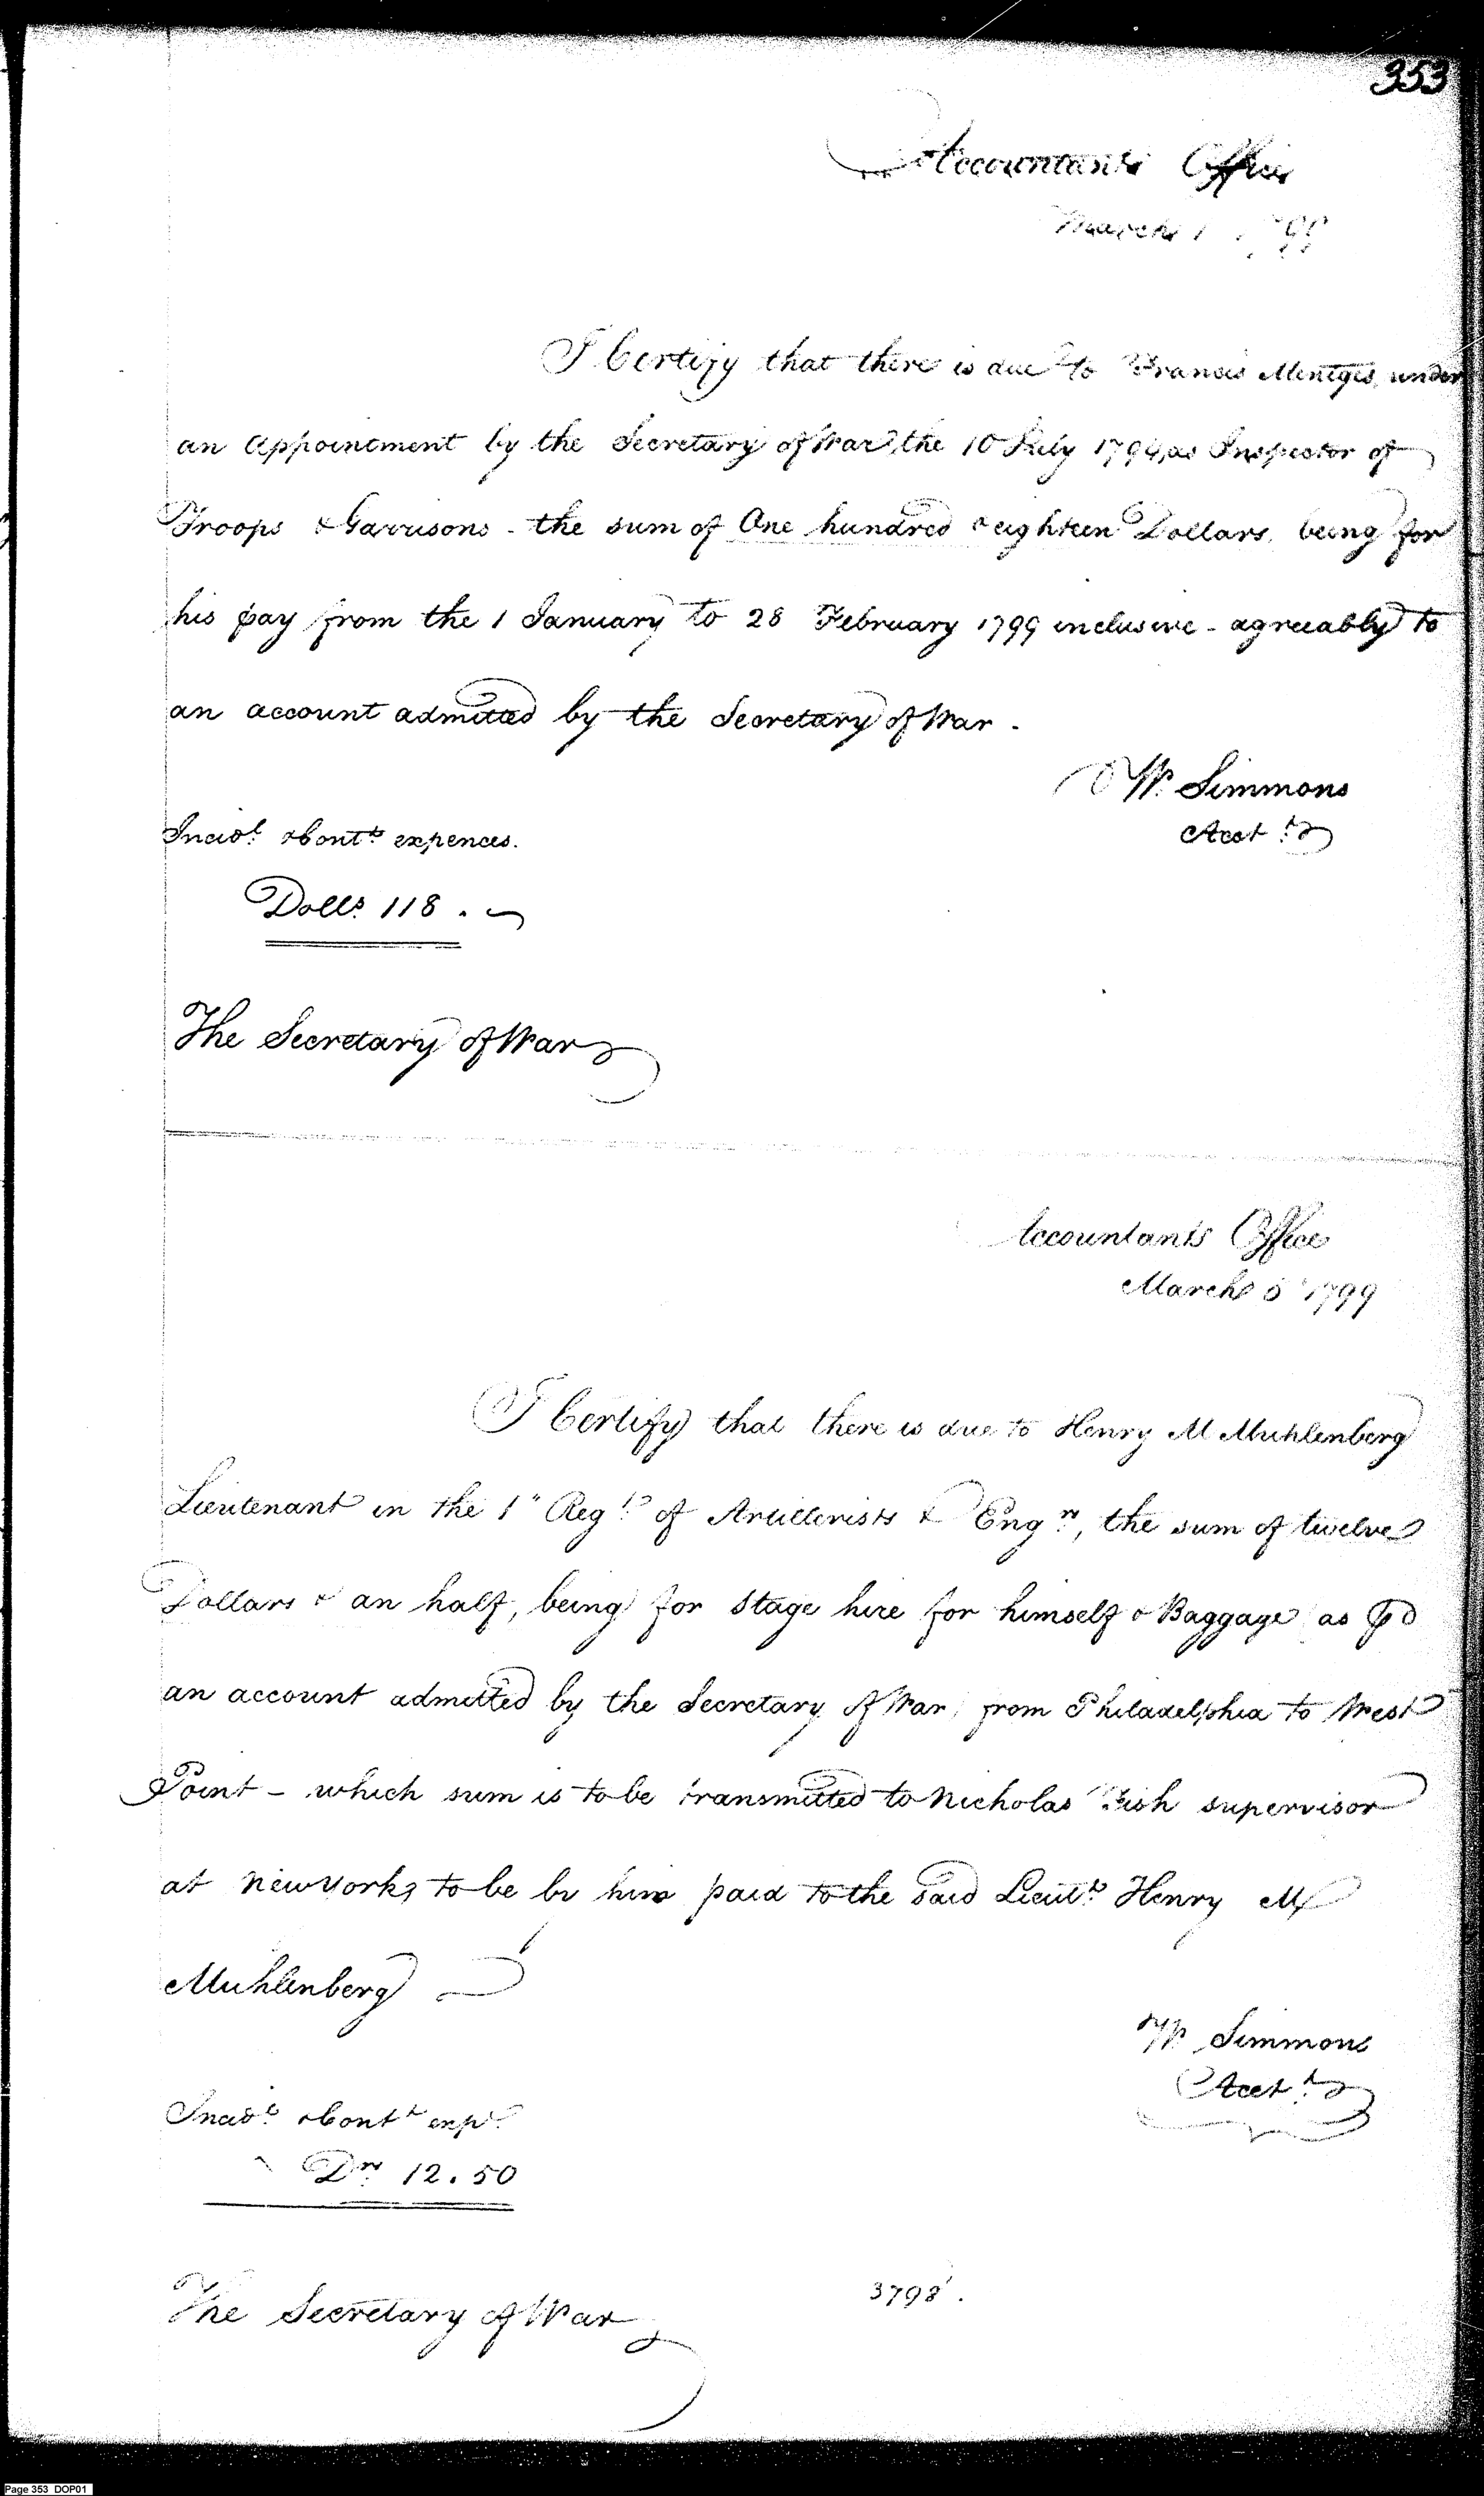 353
Accountants Office
March 1 1799
I Certify that there is due to Francis Mentges, under
an Appointment by the Secretary of War, the 10 July 1794, as Inspector of
Troops & Garrisons - the sum of One hundred & eighteen Dollars, being for
his pay from the 1 January to 28 February 1799 inclusive - agreeably to
an account admitted by the Secretary of War -
Wm. Simmons
Acct.t
Incid.l & Cont.t expences.
Doll.s 118 . ~
The Secretary of War
Accountants Office
March 5 1799
I Certify that there is due to Henry M Muhlenberg
Lieutenant in the 1" Reg.t of Artillerists & Eng.rs, the sum of twelve
Dollars & an half, being for stage hire for himself & Baggage as ⅌
an account admitted by the Secretary of War, from Philadelphia to West
Point - which sum is to be transmitted to Nicholas Fish supervisor
at New York, to be by him paid to the said Lieut.t Henry M
Muhlenberg
Wm Simmons
Acct.t
Incid.l & Cont.t exp.s
D.rs 12.50
The Secretary of War
3798.
Page 353 DOP01